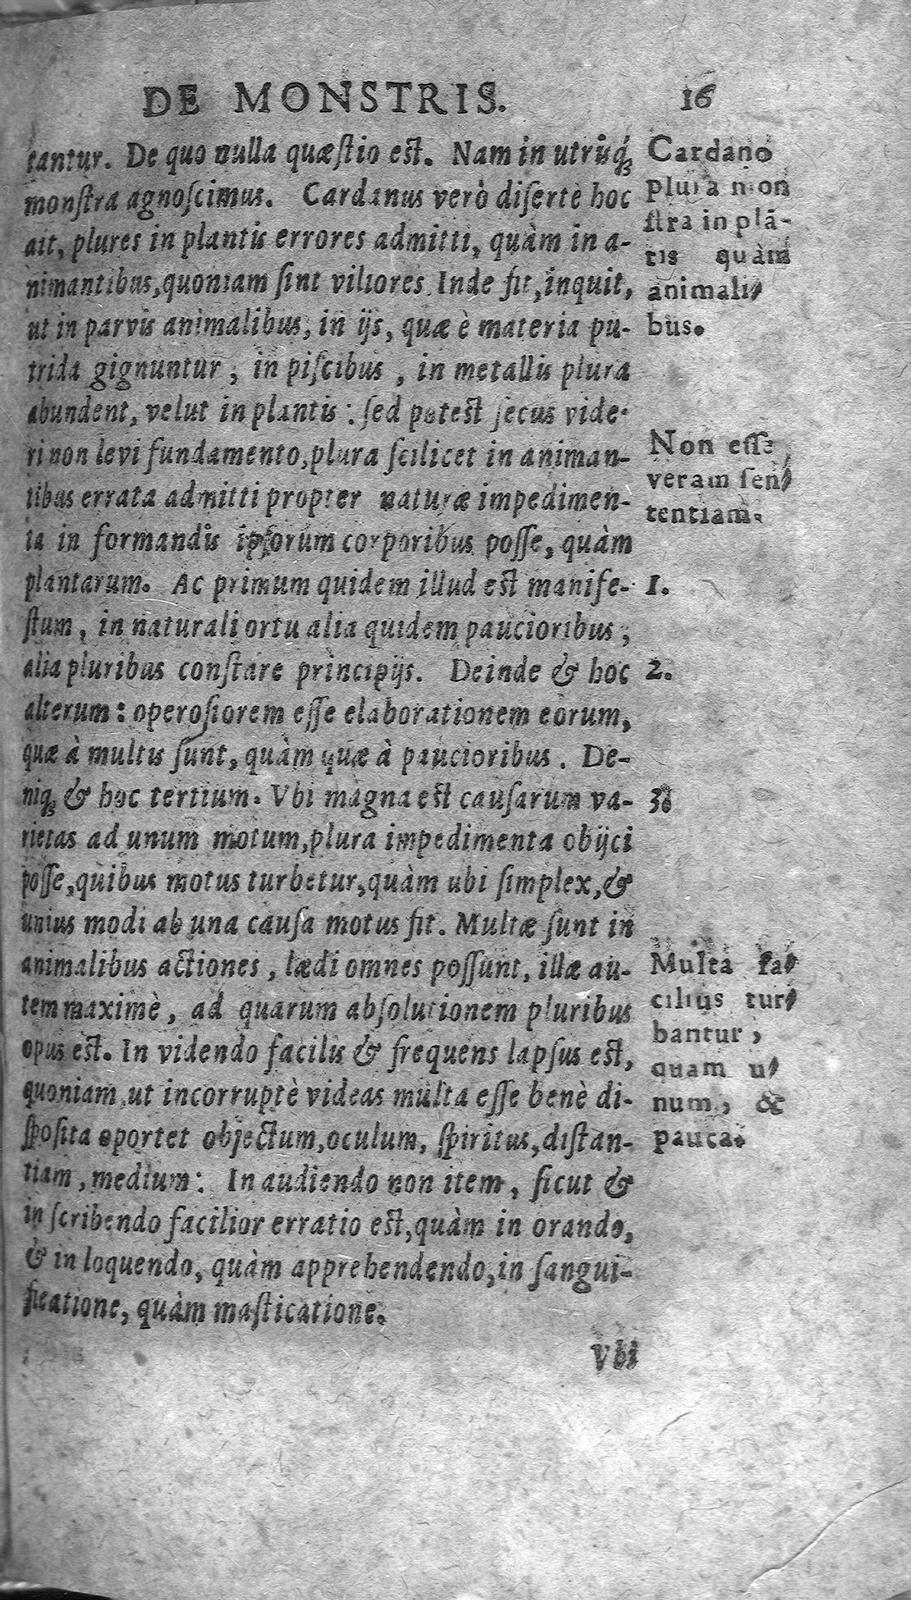 DE MONSTRIS. 16
tantur. De quo nulla quæſtio est. Nam in utriq́ꝫ
monſtra agnoſcimus. Cardanus verò diſertè hoc
ait, plures in plantis errores admitti, quàm in a-
nimantibus, quoniam ſint viliores. Inde fit, inquit,
ut in parvis animalibus, in ijs, quæ è materia pu-
trida gignuntur, in piſcibus, in metallis plura
abundent, velut in plantis: ſed potest ſecus vide-
ri non levi fundamento, plura ſcilicet in animan-
tibus errata admitti propter naturæ impedimen-
ta in formandis ipſorum corporibus poſſe, quàm
plantarum. Ac primum quidem illud est manife-
ſtum, in naturali ortu alia quidem paucioribus,
alia pluribus conſtare principijs. Deinde & hoc
alterum: operoſiorem eſſe elaborationem eorum,
quæ à multis ſunt, quàm quæ à paucioribus. De-
niqꝫ & hoc tertium. Vbi magna est cauſarum va-
rietas ad unum motum, plura impedimenta obijci
poſſe, quibus motus turbetur, quàm ubi ſimplex, &
unius modi ab una cauſa motus fit. Multæ ſunt in
animalibus actiones, lædi omnes poſſunt, illæ au-
tem maximè, ad quarum abſolutionem pluribus
opus est. In videndo facilis & frequens lapſus est,
quoniam ut incorruptè videas multa eſſe benè di-
ſpoſita oportet objectum, oculum, ſpiritus, diſtan-
tiam, medium: In audiendo non item, ſicut &
in ſcribendo facilior erratio est, quàm in orando,
& in loquendo, quàm apprehendendo, in ſangui-
ficatione, quàm maſticatione.
Vbi
Cardano
plura mon
ſtra in plā-
tis quàm
animali-
bus.
Non eſſe
veram ſen-
tentiam.
1.
2.
3.
Multa fa-
cilius tur-
bantur,
quam u-
num, &
pauca.